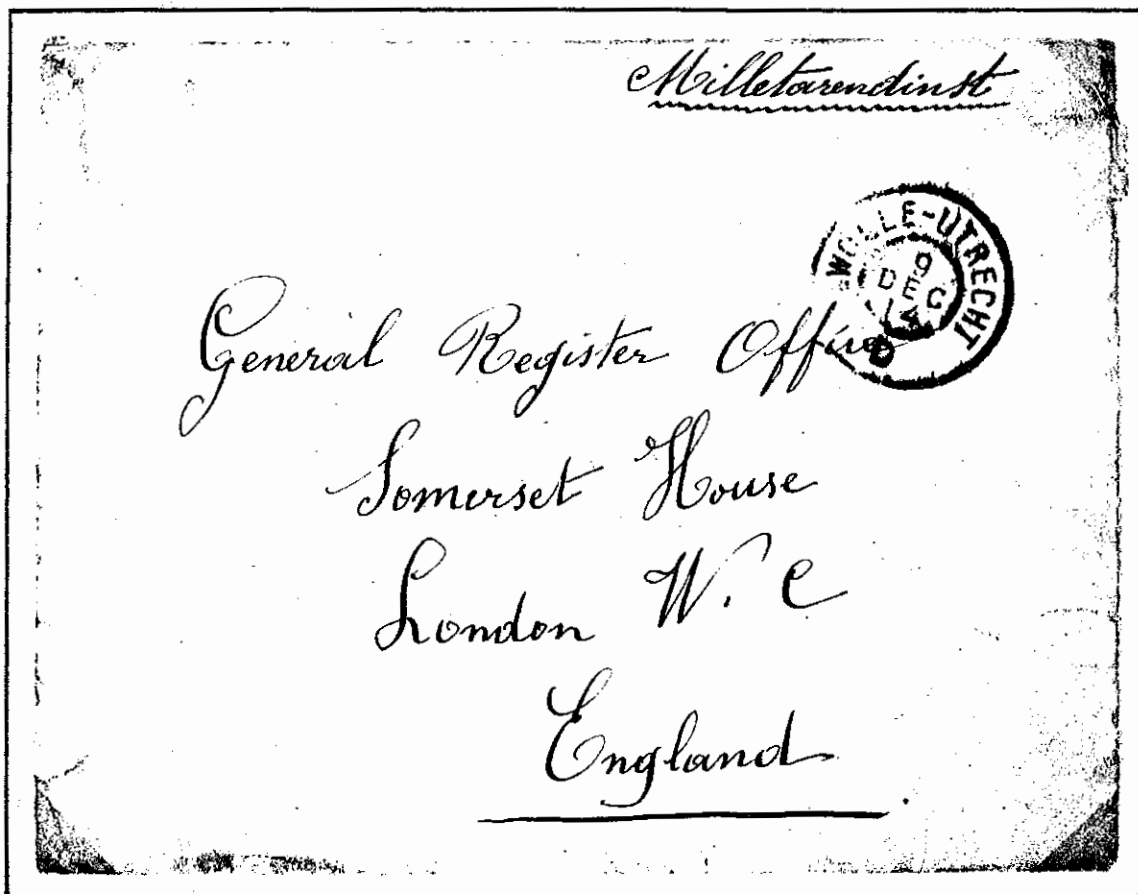 Milletarendinst
WOLLE-UTRECHT
9
DEC
D
General Register Office
Somerset House
London W. C
England